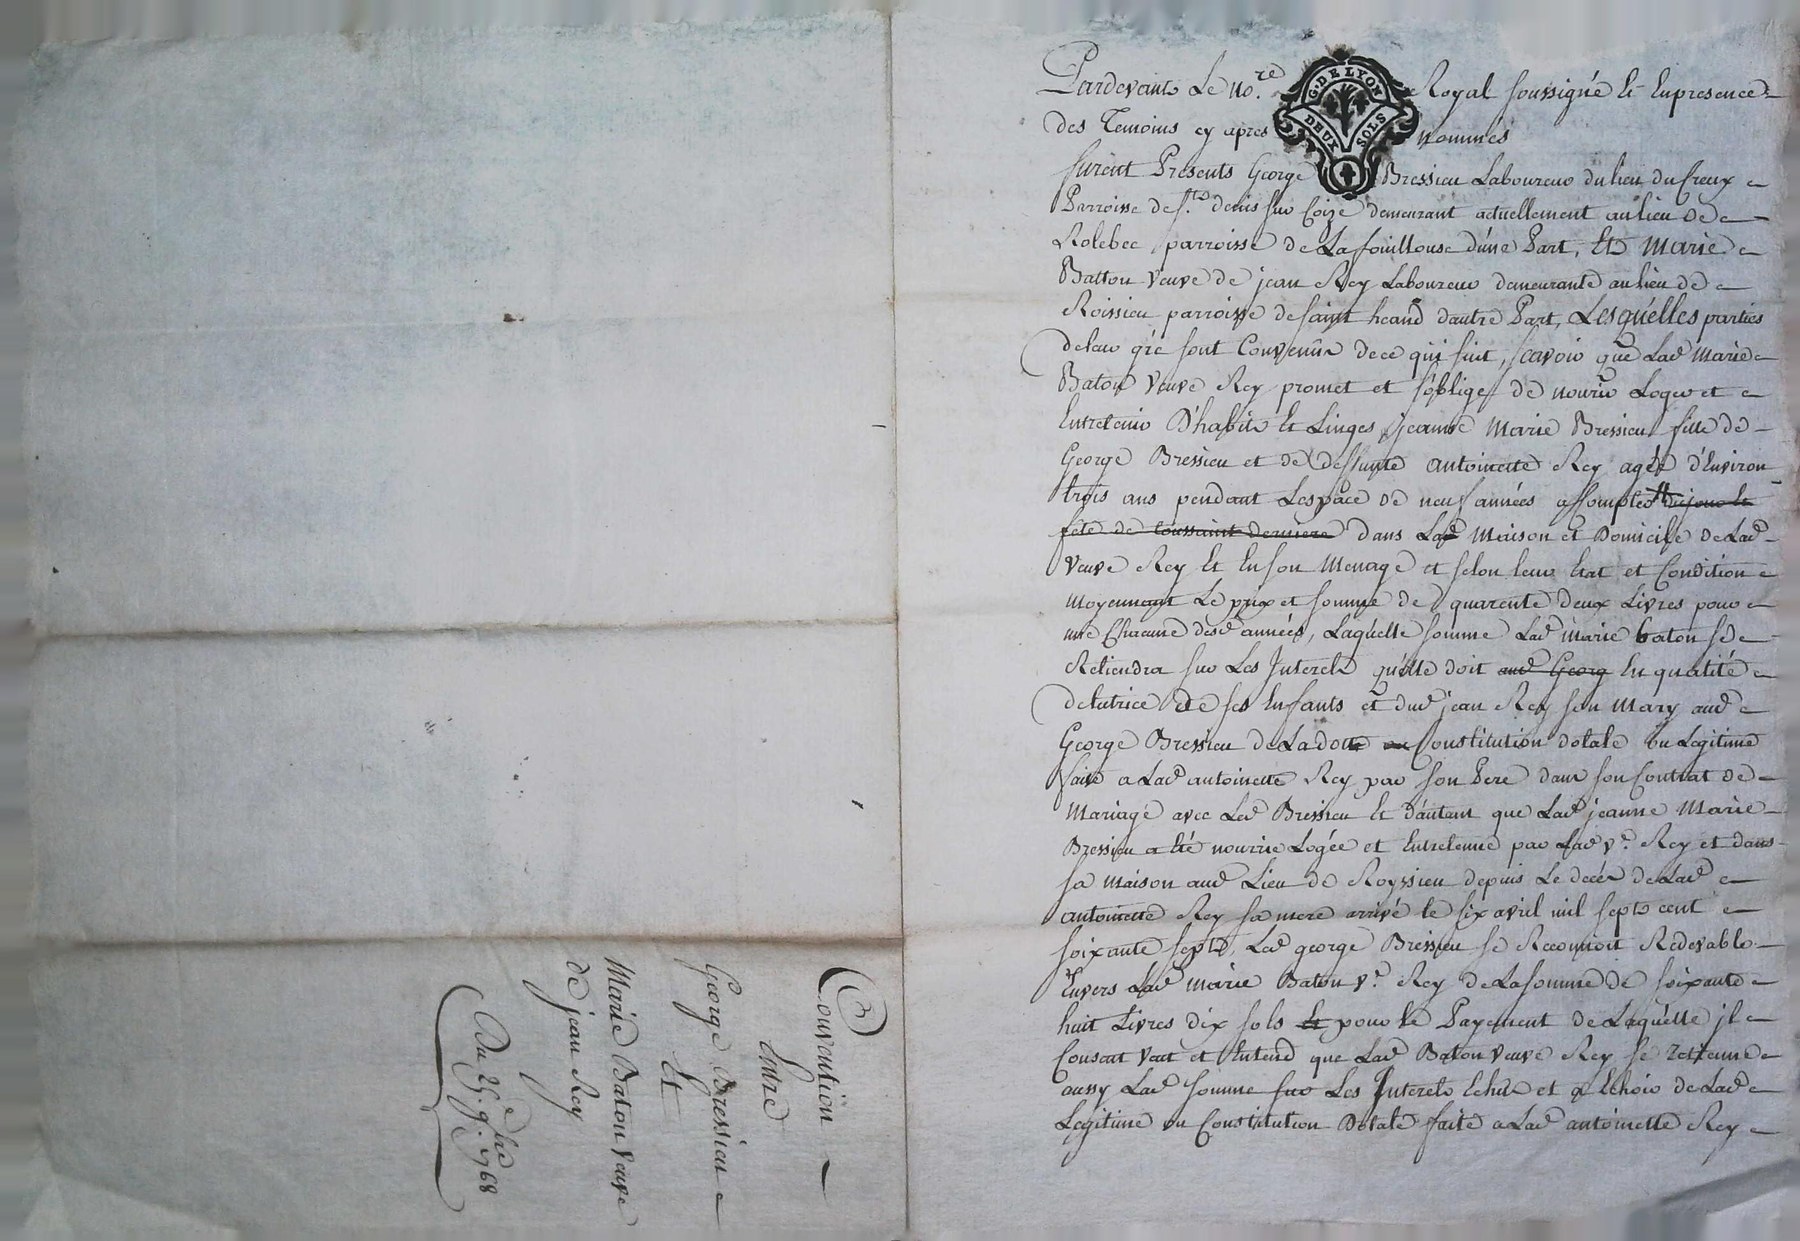 Pardevant Le no.re Royal soussigné Et Enpresence
des Temoins cy apres nommés
G. DE LYON
DEUX SOLS
furent Presents George Bressieu Laboureur du lieu du Creux
Parroisse de St. denis sur Coize demeurant actuellement au lieu de
Rolebec parroisse de Lafouillouse d'une Part, Et Marie
Batton veuve de jean Rey Laboureur demeurante au lieu de
Roissieu parroisse de saint heand dautre Part, Lesquelles parties
deleur gré sont Convenûs de ce qui suit, scavoir que Lad Marie
Baton veuve Rey promet et s'oblige de nourir Loger et
Entretenir D'habits Et Linges jeanne Marie Bressieu fille de
George Bressieu et de deffunte antoinette Rey agée d'Environ
trois ans pendant Lespace de neuf années
fête de toussaint derniere dans Lad Maison et Domicile de Lad
veuve Rey Et En son Menage et selon leur Etat et Condition
Moyennant Le prix et somme de quarente deux Livres pour
une Chacune desd années, Laquelle somme Lad marie baton se
Retiendra sur Les Interets qu'elle doit aud Georg En qualité
detutrice de ses Enfants et dud jean Rey son Mary aud
George Bressieu de La dotte ou Constitution dotale ou Legitime
faite a Lad antoinette Rey par son Pere dans son Contrat de
Mariage avec Led Bressieu Et d'autant que Lad jeanne Marie
Bressieu a été nourrie Logée et Entretenue par Lad ve. Rey et dans
sa maison aud Lieu de Royssieu depuis Le decés de Lad
antoinette Rey sa mere arrivé le six avril mil sept cent
soixante sept, Led george Bressieu se Reconnoit Redevable
Envers Lad Marie Baton ve. Rey de La somme de soixante
huit Livres dix sols et pour le Payement de Laquelle jl
Consent veut et Entend que Lad Baton veuve Rey se retienne
aussy Lad somme sur Les Interets Echûs et a Echoir de Lad
Legitime ou Constitution Dotale faite a Lad antoinette Rey
Convention
Entre
George Bressieu
Et
Marie Baton veuve
de jean Rey
Du 25.e 9.bre 1768